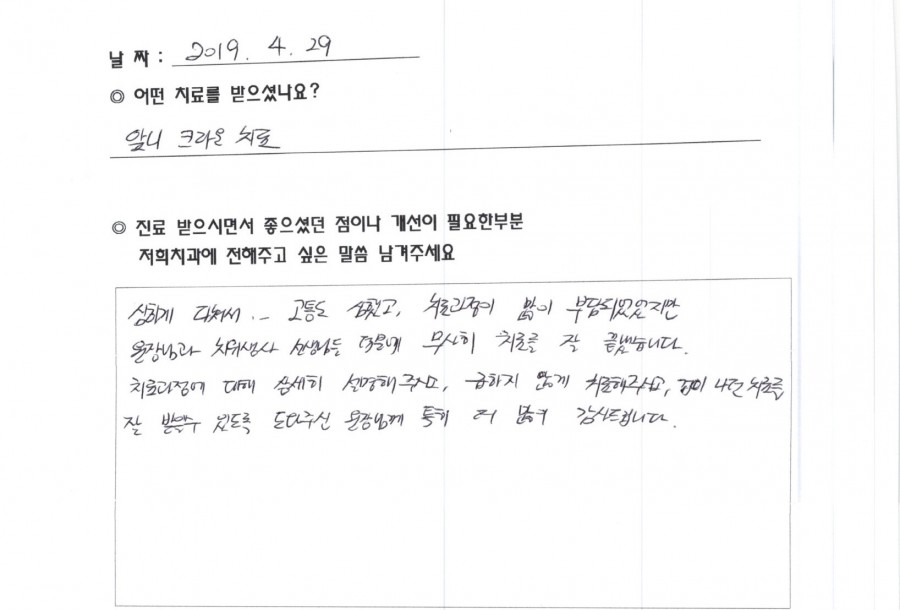 날 짜 : 2019. 4. 29
◎ 어떤 치료를 받으셨나요?
앞니 크라운 치료
◎ 진료 받으시면서 좋으셨던 점이나 개선이 필요한부분
저희치과에 전해주고 싶은 말씀 남겨주세요
심하게 다쳐서.. 고통도 심했고, 치료과정이 많이 부담되었었지만
원장님과 치위생사 선생님들 덕분에 무사히 치료를 잘 끝냈습니다.
치료과정에 대해 상세히 설명해주시고, 급하지 않게 치료해주시고, 겁이 나던 치료를
잘 받을수 있도록 도와주신 원장님께 특히 더 감사드립니다.